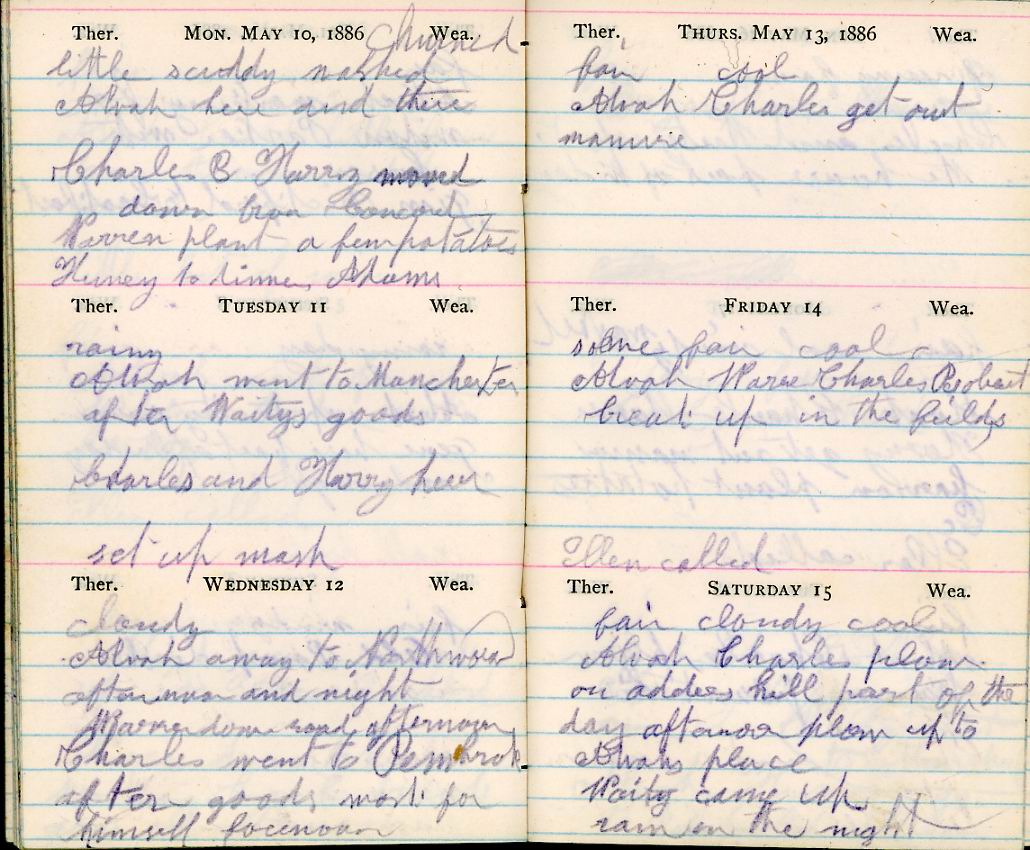 Ther. Mon. May 10, 1886 Wea.
churned
little scuddy washed
Alvah here and there
Charles & Harry moved
down from Concord
Warren plant a few potatoes
to dinner Adams
Ther. Tuesday 11 Wea.
rainy
Alvah went to Manchester
after Waitys goods
Charles and Harry heer
set up mash
Ther. Wednesday 12 Wea.
cloudy
Alvah away to Northwood
afternoon and night
down road afternoon
Charles went to Pembrok
after goods work for
himself forenoon
Ther. Thurs. May 13, 1886 Wea.
fair cool
Alvah Charles get out
manure
Ther. Friday 14 Wea.
some fair cool
Alvah Charles Robert
break up in the feilds
Ellen called
Ther. Saturday 15 Wea.
fair cloudy cool
Alvah Charles plow
on hill part of the
day afternoon plow up to
Alvahs place
Waity came up
rain in the night